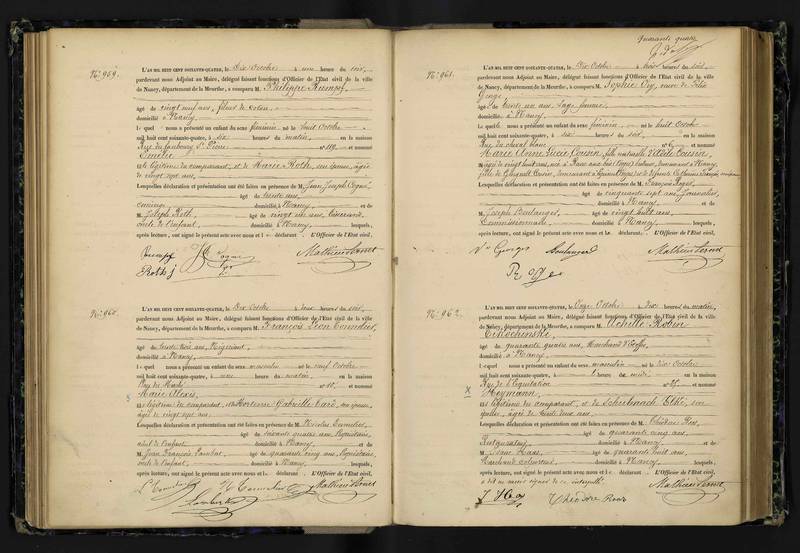 N.º 959.
L'AN MIL HUIT CENT SOIXANTE-QUATRE, le Dix Octobre à une heure du soir,
pardevant nous Adjoint au Maire, délégué faisant fonctions d'Officier de l'Etat civil de la ville
de Nancy, département de la Meurthe, a comparu M. Philippe Rumpf,
âgé de vingt neuf ans, fileur de coton,
domicilié à Nancy
lequel nous a présenté un enfant du sexe féminin né le huit Octobre
mil huit cent soixante-quatre, à six heures du matin, en la maison
Rue du faubourg St. Pierre n.º 119 et nommé
Emélie
fille légitime du comparant, et de Marie Roth, son épouse, âgée
de vingt sept ans.
Lesquelles déclaration et présentation ont été faites en présence de M. Jean Joseph Cogne,
âgé de trente ans,
domicilié à Nancy et de
M. Joseph Roth, âgé de vingt six ans, tisserand,
oncle de l'enfant, domicilié à Nancy, lesquels,
après lecture, ont signé le présent acte avec nous et le déclarant. L'Officier de l'Etat civil,
Rumpf Cogne Mathieu
Roth j
N.º 960.
L'AN MIL HUIT CENT SOIXANTE-QUATRE, le Dix Octobre à deux heures du soir,
pardevant nous Adjoint au Maire, délégué faisant fonctions d'Officier de l'Etat civil de la ville
de Nancy, département de la Meurthe, a comparu M. François Léon
âgé de trente trois ans, Négociant,
domicilié à Nancy,
lequel nous a présenté un enfant du sexe masculin né le neuf Octobre
mil huit cent soixante-quatre, à une heure du matin, en la maison
n.º 10 et nommé
Marie Alexis,
fils légitime du comparant, et de Hortense Gabrielle son épouse,
âgée de vingt sept ans
Lesquelles déclaration et présentation ont été faites en présence de M. Nicolas
âgé de soixante quatre ans, Propriétaire,
aïeul de l'enfant, domicilié à Nancy, et de
M. Jean François Lambert, âgé de quarante cinq ans, Propriétaire,
oncle de l'enfant, domicilié à Nancy, lesquels,
après lecture, ont signé le présent acte avec nous et le déclarant. L'Officier de l'Etat civil,
Lambert Mathieu
Quarante quatre
N.º 961.
L'AN MIL HUIT CENT SOIXANTE-QUATRE, le Dix Octobre à trois heures du soir,
pardevant nous Adjoint au Maire, délégué faisant fonctions d'Officier de l'Etat civil de la ville
de Nancy, département de la Meurthe, a comparu M. Sophie veuve de
Georges
âgée de trente un ans, Sage femme,
domiciliée à Nancy,
laquelle nous a présenté un enfant du sexe féminin né le huit Octobre
mil huit cent soixante-quatre, à six heures du soir, en la maison
Rue du cheval blanc n.º 6 et nommé
Marie Anne Lucie Cousin, fille naturelle d'Adèle Cousin,
Lesquelles déclaration et présentation ont été faites en présence de M. François Roger,
âgé de cinquante sept ans, Journalier,
domicilié à Nancy, et de
M. Joseph Boulanger, âgé de vingt huit ans,
Commissionnaire, domicilié à Nancy, lesquels,
après lecture, ont signé le présent acte avec nous et la déclarante. L'Officier de l'Etat civil,
Ve Georges Boulanger Mathieu
Roger
N.º 962.
L'AN MIL HUIT CENT SOIXANTE-QUATRE, le Onze Octobre à dix heures du matin,
pardevant nous Adjoint au Maire, délégué faisant fonctions d'Officier de l'Etat civil de la ville
de Nancy, département de la Meurthe, a comparu M. Achille Robin
Cikochinski,
âgé de quarante quatre ans, Marchand d'Etoffes,
domicilié à Nancy,
lequel nous a présenté un enfant du sexe masculin né le dix Octobre
mil huit cent soixante-quatre, à heure de midi en la maison
Rue de l'Equitation n.º 25 et nommé
X Heymann,
fils légitime du comparant, et de Schübnach Elke, son
épouse, âgée de trente deux ans,
Lesquelles déclaration et présentation ont été faites en présence de M. Théodore Roos,
âgé de quarante cinq ans,
Restaurateur, domicilié à Nancy et de
M. Isaac Haas, âgé de quarante huit ans,
Marchand colporteur, domicilié à Nancy, lesquels,
après lecture, ont signé le présent acte avec nous et le déclarant. L'Officier de l'Etat civil,
Théodore Roos Mathieu